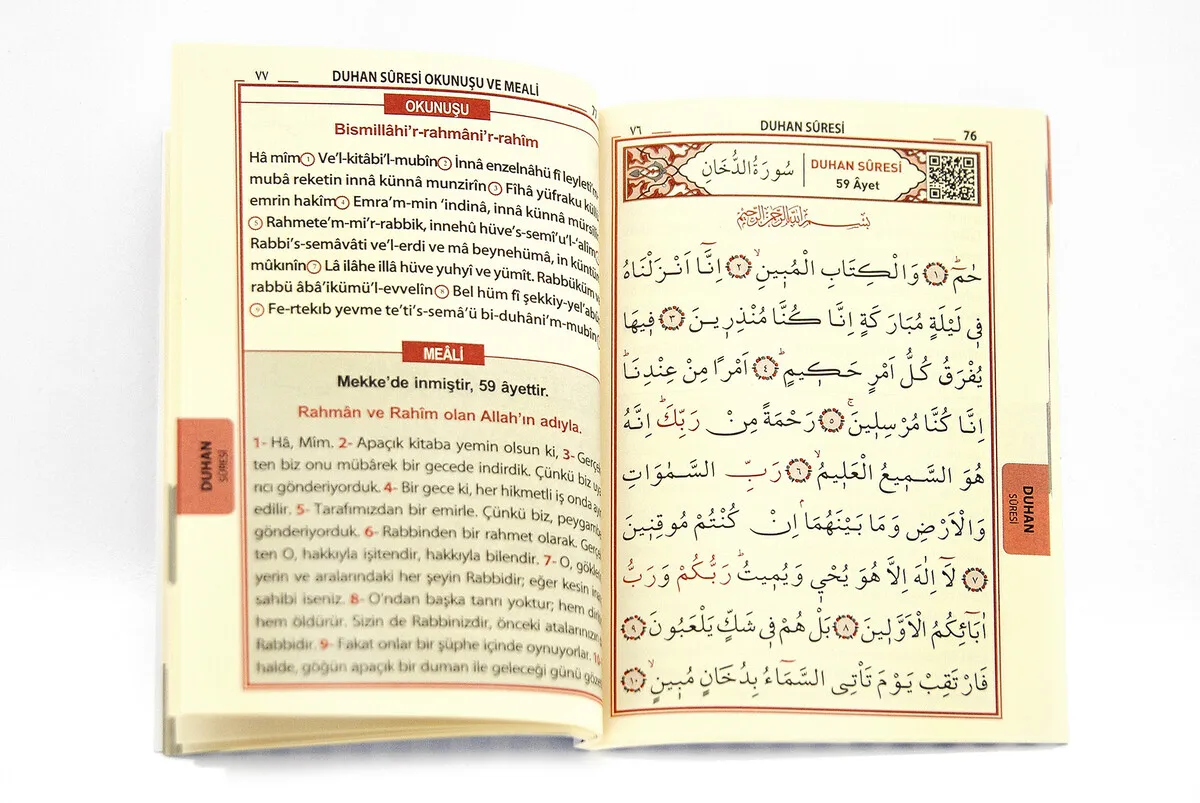 ٧٧
DUHAN SÛRESİ OKUNUŞU VE MEALİ
OKUNUŞU
Bismillâhi'r-rahmâni'r-rahîm
Hâ mîm① Ve'l-kitâbi'l-mubîn② İnnâ enzelnâhü fî leyleti'm
mubâ reketin innâ künnâ munzirîn③ Fîhâ yüfraku küllü
emrin hakîm④ Emra'm-min 'indinâ, innâ künnâ mürsilî
⑤ Rahmete'm-mi'r-rabbik, innehû hüve's-semî'u'l-'alîm
Rabbi's-semâvâti ve'l-erdi ve mâ beynehümâ, in küntüm
mûkınîn⑦ Lâ ilâhe illâ hüve yuhyî ve yümît. Rabbüküm
rabbü âbâ'ikümü'l-evvelîn⑧ Bel hüm fî şekkiy-yel'abû
⑨ Fe-rtekıb yevme te'ti's-semâ'ü bi-duhâni'm-mubîn
MEÂLİ
Mekke'de inmiştir, 59 âyettir.
Rahmân ve Rahîm olan Allah'ın adıyla.
1- Hâ, Mîm. 2- Apaçık kitaba yemin olsun ki, 3- Gerçe
ten biz onu mübârek bir gecede indirdik. Çünkü biz
rıcı gönderiyorduk. 4- Bir gece ki, her hikmetli iş onda
edilir. 5- Tarafımızdan bir emirle. Çünkü biz, peygamb
gönderiyorduk. 6- Rabbinden bir rahmet olarak. Gerçe
ten O, hakkıyla işitendir, hakkıyla bilendir. 7- O, gökle
yerin ve aralarındaki her şeyin Rabbidir; eğer kesin
sahibi iseniz. 8- O'ndan başka tanrı yoktur; hem
hem öldürür. Sizin de Rabbinizdir, önceki atalarınızın
Rabbidir. 9- Fakat onlar bir şüphe içinde oynuyorlar. 10
halde, göğün apaçık bir duman ile geleceği günü
DUHAN
SÛRESİ
٧٦
DUHAN SÛRESİ
76
سُورَةُ الدُّخَانِ
DUHAN SÛRESİ
59 Âyet
بِسْمِ اللّٰهِ الرَّحْمٰنِ الرَّحِيمِ
حٰمٓ ﴿١﴾ وَالْكِتَابِ الْمُبٖينِ ﴿٢﴾ اِنَّٓا اَنْزَلْنَاهُ
فٖي لَيْلَةٍ مُبَارَكَةٍ اِنَّا كُنَّا مُنْذِرٖينَ ﴿٣﴾ فٖيهَا
يُفْرَقُ كُلُّ اَمْرٍ حَكٖيمٍ ﴿٤﴾ اَمْرًا مِنْ عِنْدِنَا
اِنَّا كُنَّا مُرْسِلٖينَ ﴿٥﴾ رَحْمَةً مِنْ رَبِّكَ اِنَّهُ
هُوَ السَّمٖيعُ الْعَلٖيمُ ﴿٦﴾ رَبِّ السَّمٰوَاتِ
وَالْاَرْضِ وَمَا بَيْنَهُمَا اِنْ كُنْتُمْ مُوقِنٖينَ
﴿٧﴾ لَٓا اِلٰهَ اِلَّا هُوَ يُحْيٖي وَيُمٖيتُ رَبُّكُمْ وَرَبُّ
اٰبَٓائِكُمُ الْاَوَّلٖينَ ﴿٨﴾ بَلْ هُمْ فٖي شَكٍّ يَلْعَبُونَ ﴿٩﴾
فَارْتَقِبْ يَوْمَ تَأْتِي السَّمَٓاءُ بِدُخَانٍ مُبٖينٍ ﴿١٠﴾
DUHAN
SÛRESİ